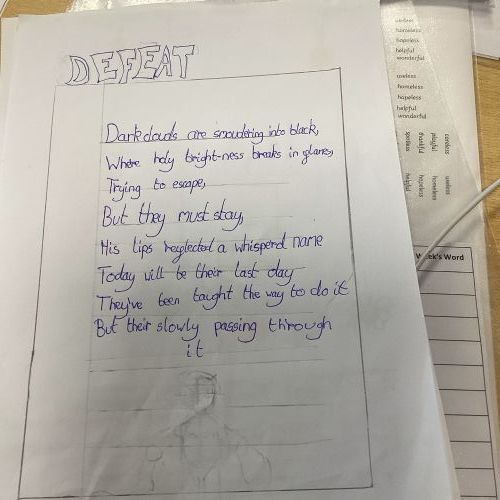 DEFEAT
Dark clouds are smoudering into black,
Where holy bright-ness breaks in glares,
Trying to escape,
But they must stay,
His lips neglected a whisperd name
Today will be their last day
They've been taught the way to do it
But their slowly passing through
it
useless
homeless
hopeless
helpful
wonderful
useless
homeless
hopeless
helpful
wonderful
careless
playful
thankful
spotless
useless
homeless
hopeless
helpful
Week's Word